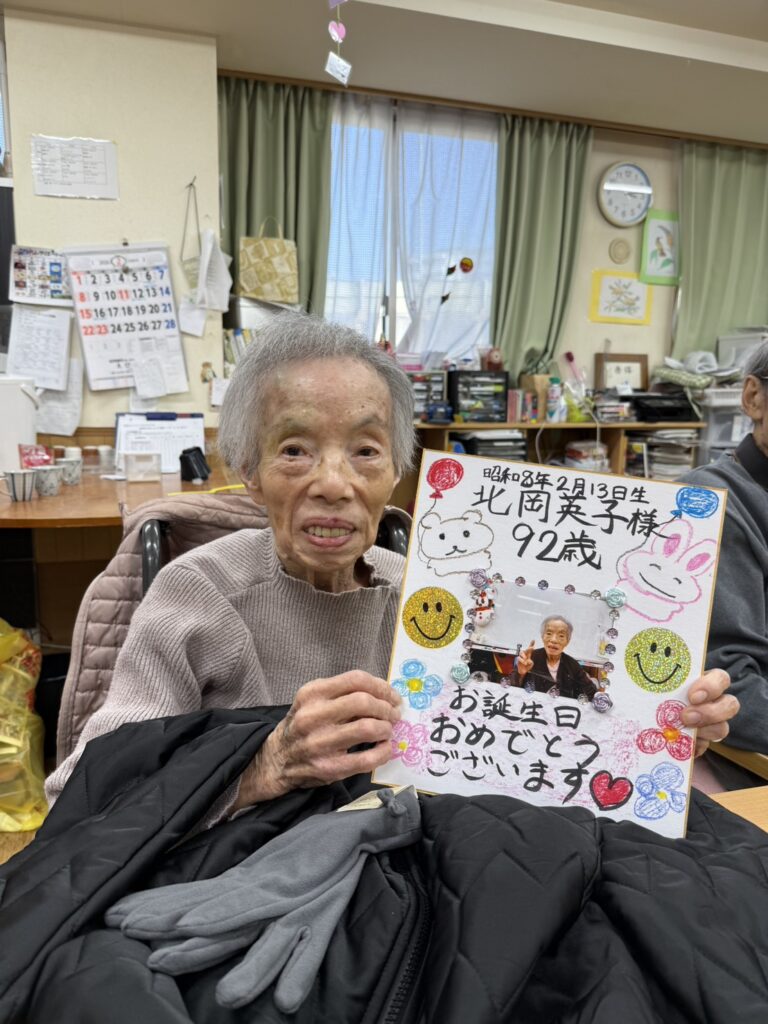 1 2 3 4 5 6 7
8 9 10 11 12 13 14
15 16 17 18 19 20 21
22 23 24 25 26 27 28
昭和8年2月13日生
北岡英子様
92歳
お誕生日
おめでとう
ございます